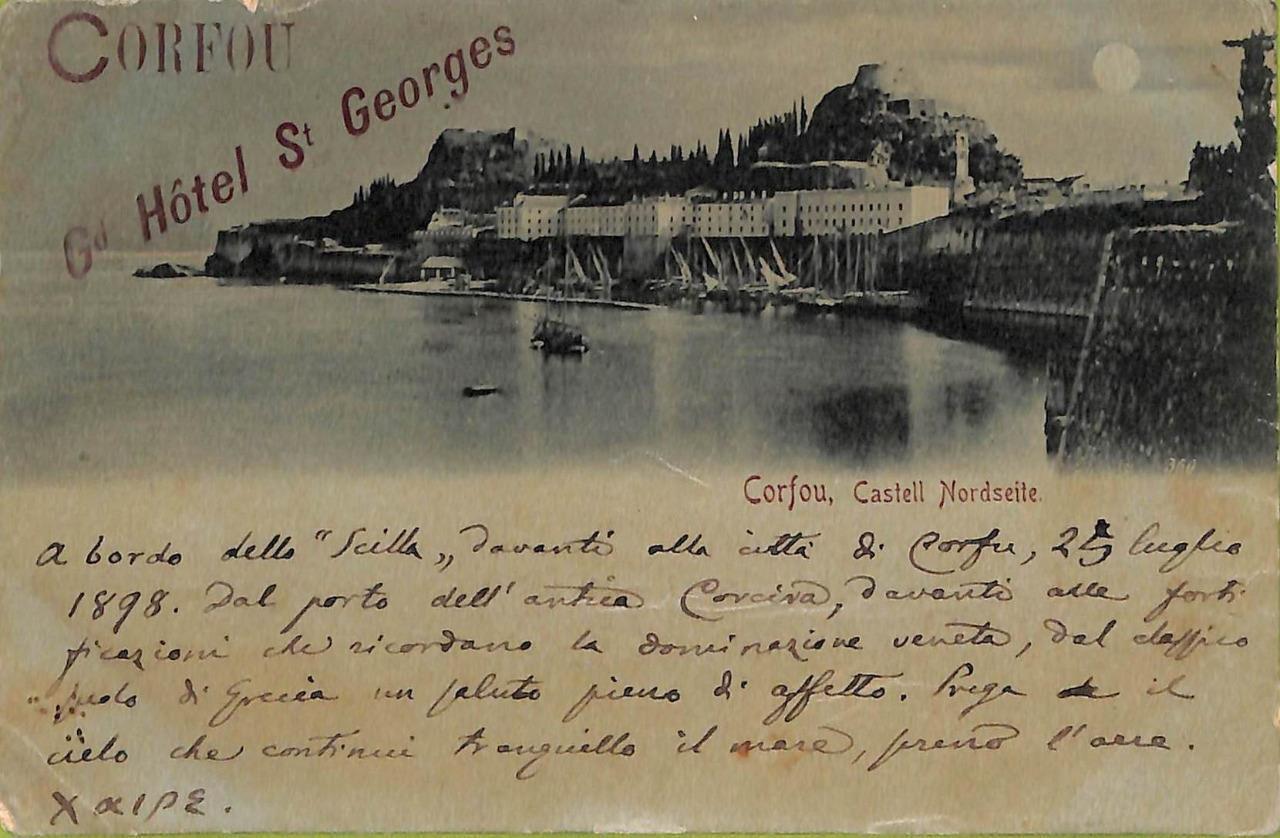 CORFOU
Gd Hôtel St Georges
360
Corfou, Castell Nordseite.
A bordo dello "Scilla„ davanti alla città di Corfu, 25 luglio
1898. Dal porto dell'antica Corcira, davanti alle forti
ficazioni che ricordano la dominazione veneta, dal classico
suolo di Grecia un saluto pieno di affetto. Prega il
cielo che continui tranquillo il mare, sereno l'aere.
Χαιρε.